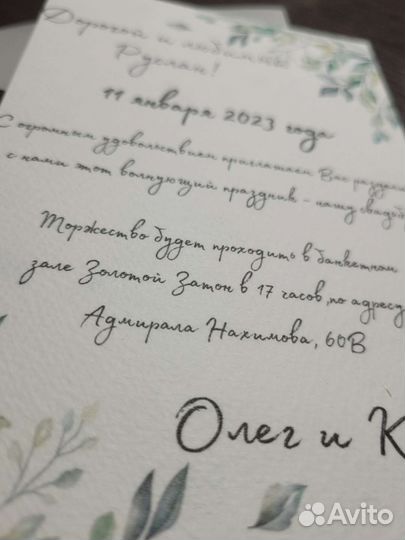 Дорогой и любимый
Руслан!
11 января 2023 года
С огромным удовольствием приглашаем Вас
с нами этот волнующий праздник - нашу свадьбу
Торжество будет проходить в банкетном
зале Золотой Затон в 17 часов, по адресу
Адмирала Нахимова, 60В
Олег и К
Avito